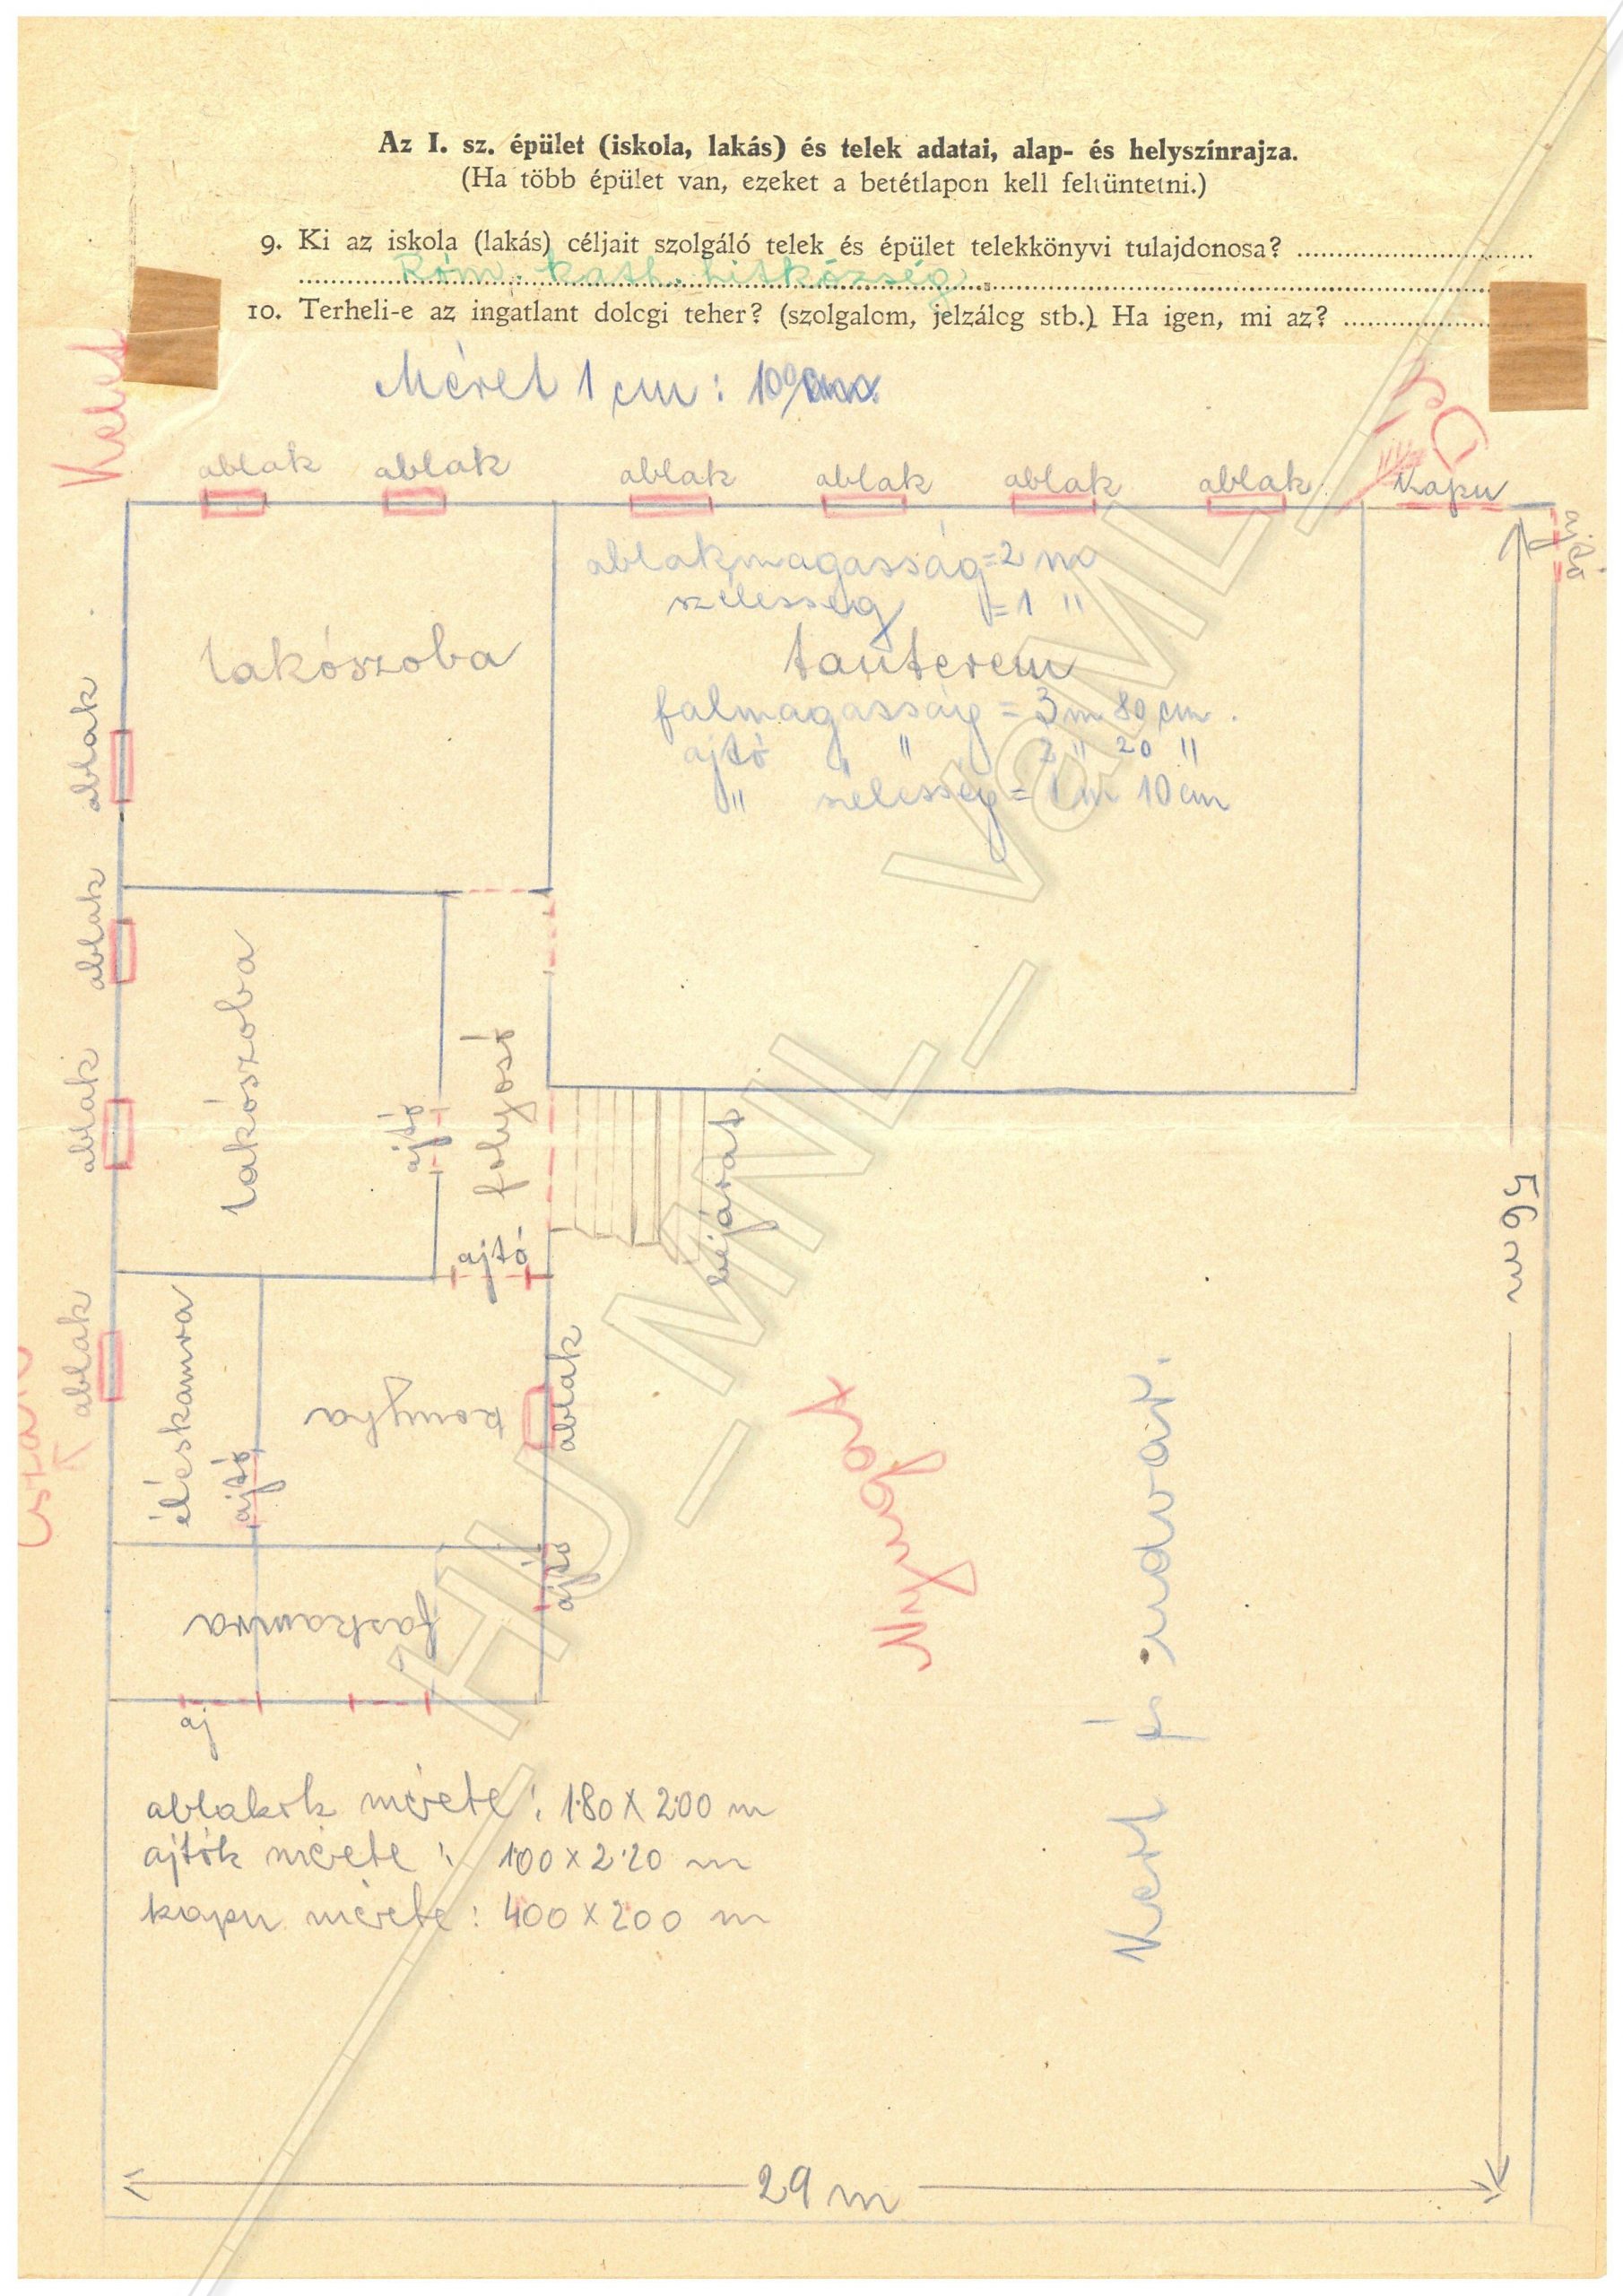 Az I. sz. épület (iskola, lakás) és telek adatai, alap- és helyszínrajza.
(Ha több épület van, ezeket a betétlapon kell feltüntetni.)
9. Ki az iskola (lakás) céljait szolgáló telek és épület telekkönyvi tulajdonosa?
Róm. kath. hitközség
10. Terheli-e az ingatlant dologi teher? (szolgalom, jelzálog stb.) Ha igen, mi az?
Kelet
Méret 1 cm : 100
ablak ablak ablak ablak ablak ablak kapu
ajtó
ablakmagasság = 2 m
szélesség = 1 "
lakószoba
tanterem
falmagasság = 3 m 80 cm.
ajtó " 2 " 20 "
" szélesség = 1 m 10 cm
ablak
ablak
lakószoba
folyosó
ajtó
ablak
bejárat
ajtó
56 m
ablak
éléskamra
ajtó
konyha
ablak
Nyugat
Kert és udvar.
ajtó
faskamra
aj
ablakok mérete : 1.80 X 2.00 m
ajtók mérete : 1.00 x 2.20 m
kapu mérete : 400 X 200 m
29 m
HU_MNL_VaML_